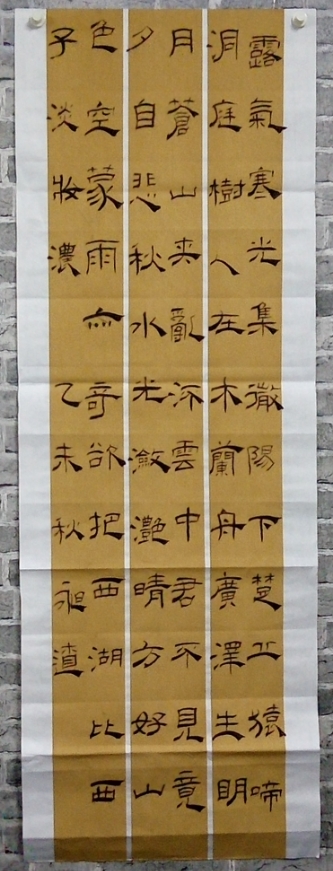 露氣寒光集微陽下楚丘猿啼
洞庭樹人在木蘭舟廣澤生明
月蒼山夾亂流雲中君不見竟
夕自悲秋水光瀲灩晴方好山
色空蒙雨亦奇欲把西湖比西
子淡妝濃 乙未秋昶渣